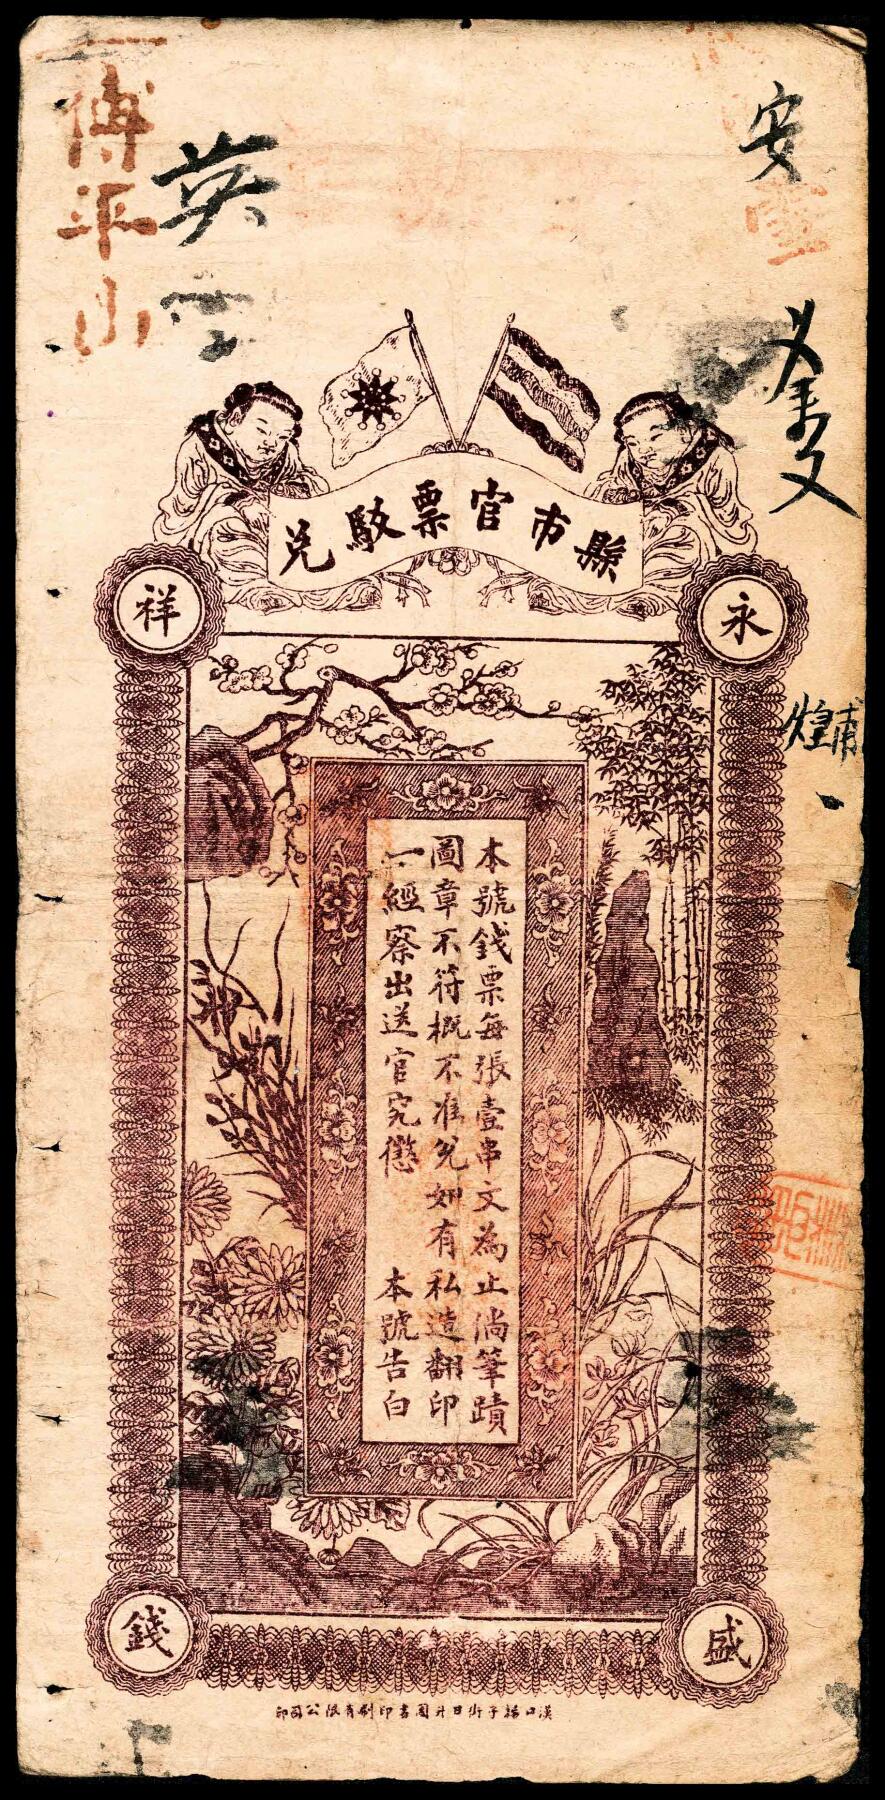 安
英
傳平山
縣市官票駁兌
永
盛
祥
錢
本號錢票每張壹串文為止倘筆蹟
圖章不符概不准兌如有私造翻印
一經察出送官究懲 本號告白
漢口揚子街日升圖書印刷有限公司印